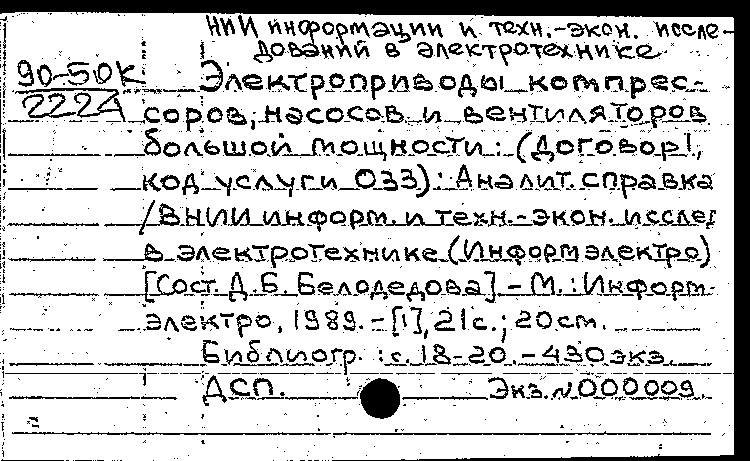 НИИ информации и техн.-экон. иссле-
дований в электротехнике
90-50К
222А
Электроприводы компрес-
соров, насосов и вентиляторов
большой мощности: (Договор!,
код услуги 033): Аналит. справка
/ВНИИ информ. и техн.-экон. исслед
в электротехнике (Информэлектро)
[Сост. Д.Б. Белодедова]. - М.: Информ-
электро, 1989. - [1], 21с.; 20см.
Библиогр.: с. 18-20. - 430экз.
ДСП. Экз. N000009.